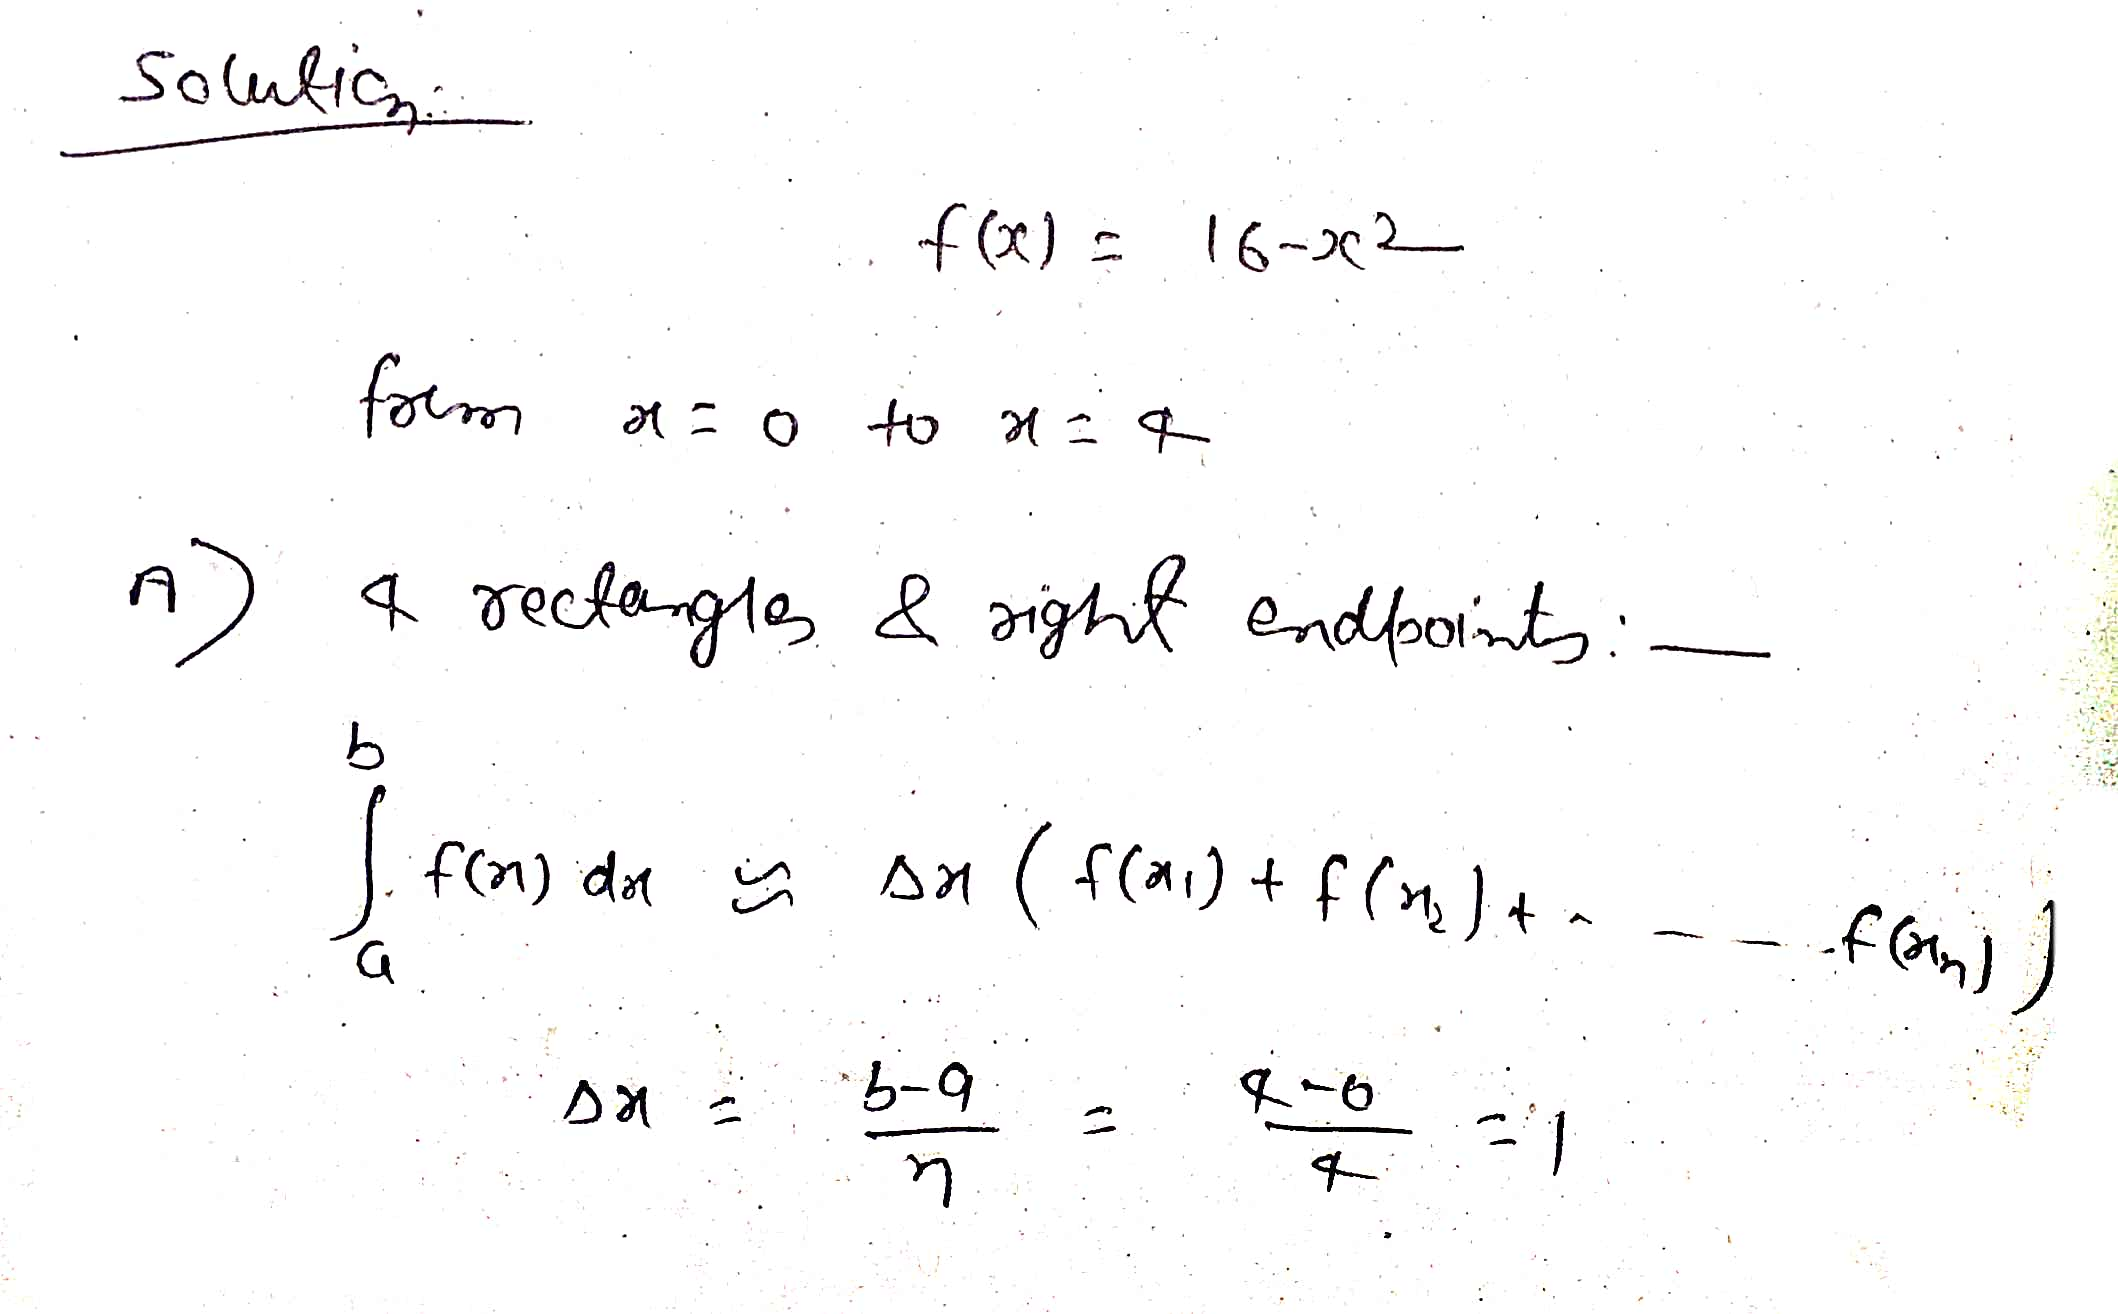 Solution:
f(x) = 16-x²
form x = 0 to x = 4
A) 4 rectangles & right endpoints:—
∫ₐᵇ f(x) dx ≈ Δx ( f(x₁) + f(x₂) + - - - f(xₙ) )
Δx = (b-a)/n = (4-0)/4 = 1